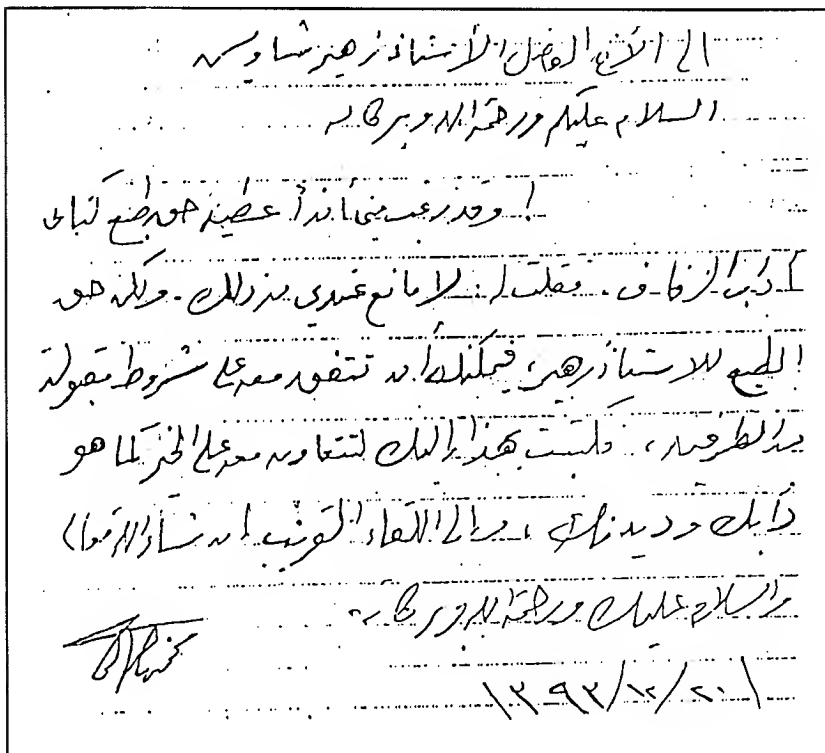 إلى الأخ الفاضل الأستاذ زهير شاويش
السلام عليكم ورحمة الله وبركاته
وقد رغب مني أن أعطيه حق طبع كتابي
آداب الزفاف. فقلت: لا مانع عندي من ذلك. ولكن حق
الطبع للأستاذ زهير، فيمكنك أن تتفق معه على شروط مقبولة
من الطرفين، فكتبت بهذا إليك لتتعاون معه على الخير كما هو
دأبك وديدنك، وإلى اللقاء القريب إن شاء الله تعالى)
والسلام عليك ورحمة الله وبركاته.
١٣٩٣/١٢/٢٠